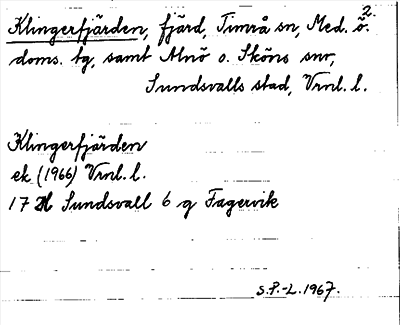 2.
Klingerfjärden, fjärd, Timrå sn, Med. ö.
doms. tg, samt Alnö o. Sköns snr,
Sundsvalls stad, Vrnl. l.
Klingerfjärden
ek (1966) Vrnl. l.
17 H Sundsvall 6 g Fagervik
S.P.-L. 1967.